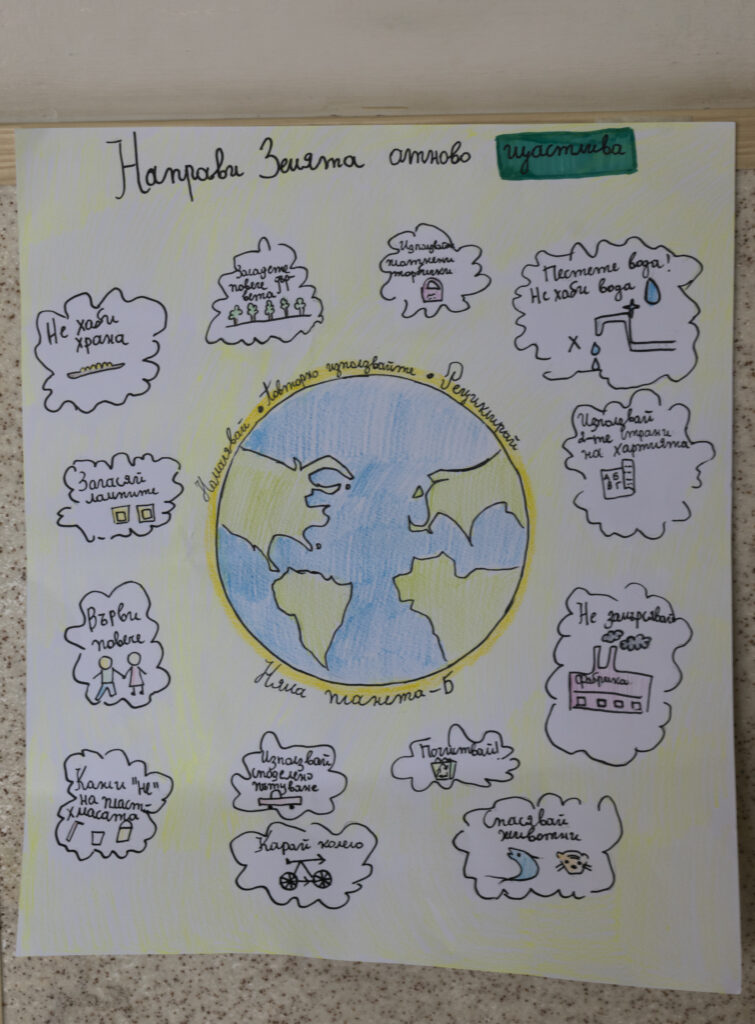 Направи Земята атново щастлива
Засадете
повече
цвета
Използвай
платнени
торбички
Пестете вода!
Не хаби вода
X
Не хаби
храна
Намалявай • Повторно използвайте • Рециклирай
Използвай
2-те страни
на хартията
А Б
В Г
Загасяй
лампите
Върви
повече
Не замърсявай
фабрика
Няма планета-Б
Кажи "Не"
на пласт-
масата
Използвай
споделено
пътуване
Карай колело
Спасявай
животни